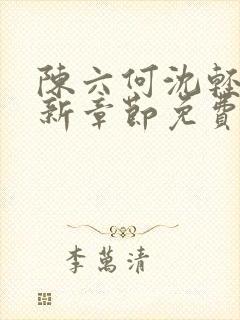 陳六何沈輕
新章節免費
李萬清